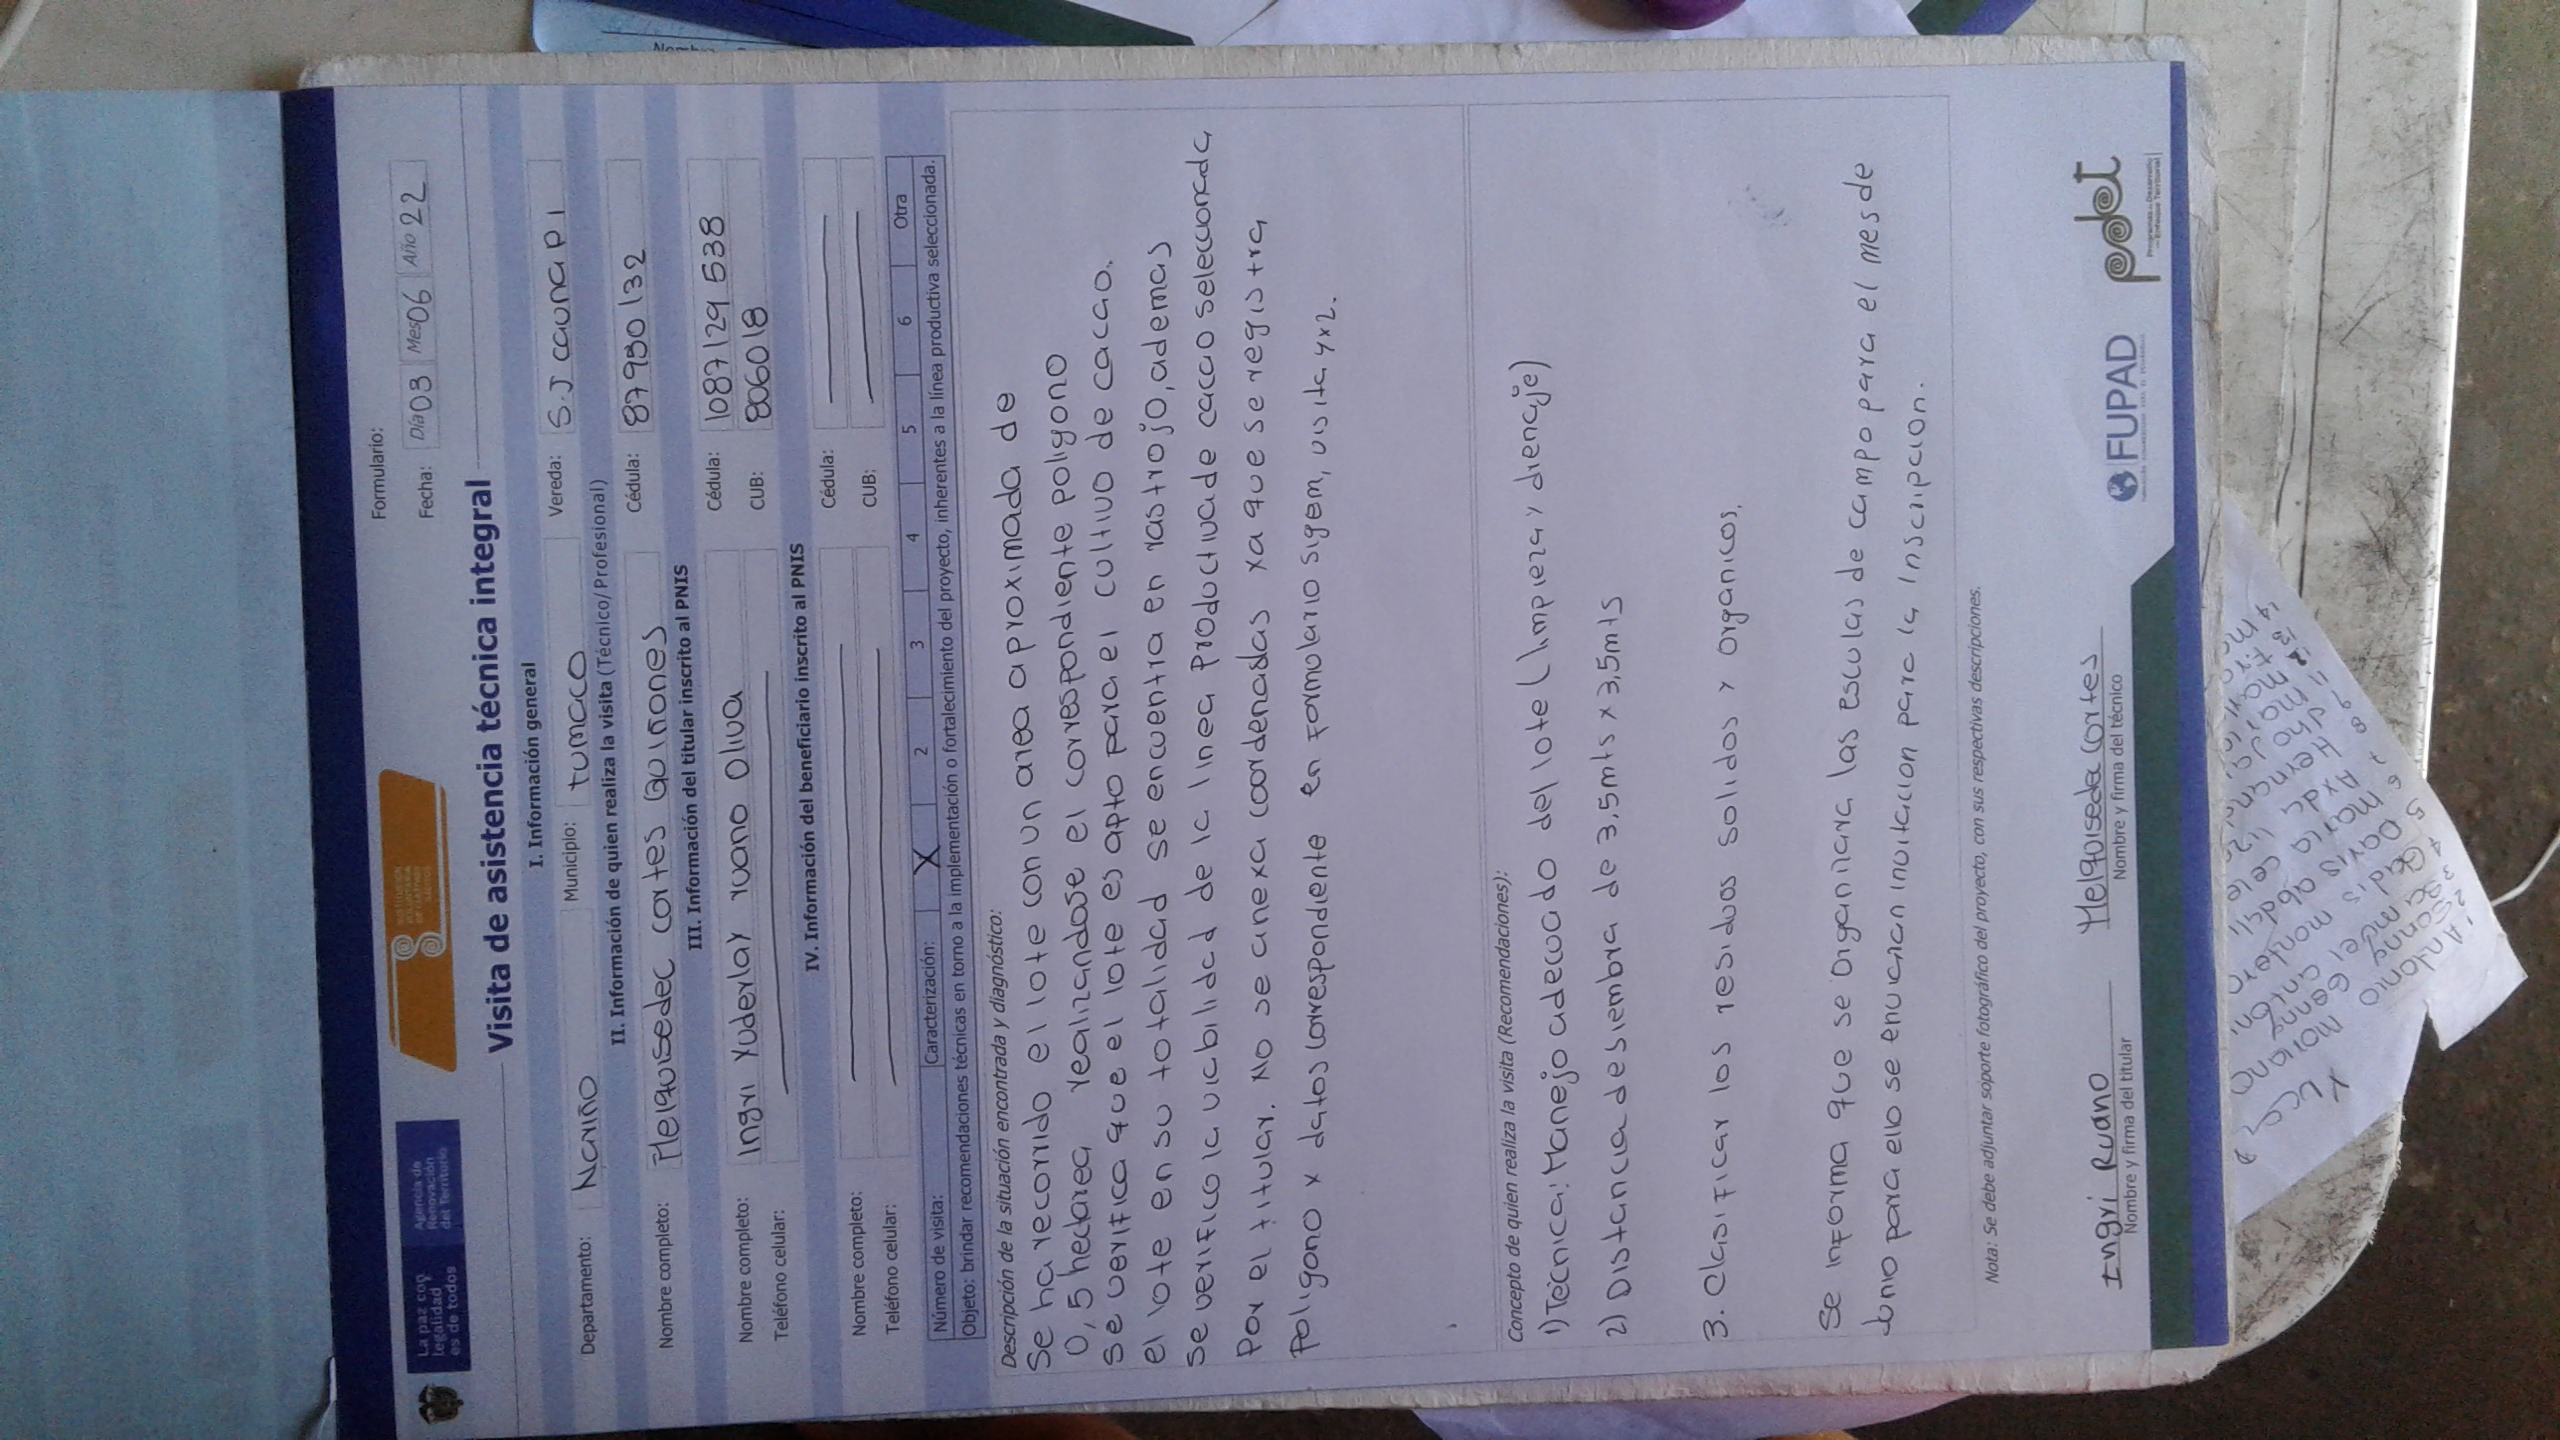 La paz con
legalidad
es de todos
Agencia de
Renovación
del Territorio
Formulario:
Fecha: Día 03 Mes 06 Año 22
Visita de asistencia técnica integral
I. Información general
Departamento: Nariño Municipio: tumaco Vereda: S.J caunapi
II. Información de quien realiza la visita (Técnico/ Profesional)
Nombre completo: Melquisedec cortes Quiñones Cédula: 87950132
III. Información del titular inscrito al PNIS
Nombre completo: Ingri Yuderlay ruano Oliva Cédula: 1087129538
Teléfono celular: CUB: 806018
IV. Información del beneficiario inscrito al PNIS
Nombre completo: Cédula:
Teléfono celular: CUB:
Número de visita: Caracterización: X 2 3 4 5 6 Otra
Objeto: brindar recomendaciones técnicas en torno a la implementación o fortalecimiento del proyecto, inherentes a la línea productiva seleccionada.
Descripción de la situación encontrada y diagnóstico:
Se ha recorrido el lote con un area aproximada de
0,5 hectarea realizandose el correspondiente poligono
se verifica que el lote es apto para el cultivo de cacao.
el lote en su totalidad se encuentra en rastrojo, ademas
se verifico la viabilidad de la linea Productiva de cacao seleccionada
Por el titular. No se anexa coordenadas ya que se registra
Poligono y datos correspondiente en Formulario sigem, visita 4x2.
Concepto de quien realiza la visita (Recomendaciones):
1) Tecnica: Manejo adecuado del lote (limpieza y drenaje)
2) Distancia de siembra de 3,5mts x 3,5mts
3. Clasificar los residuos solidos y organicos.
Se informa que se organizara las esculas de campo para el mes de
Junio para ello se enviaran invitacion para la Inscripcion.
Nota: Se debe adjuntar soporte fotográfico del proyecto, con sus respectivas descripciones.
Ingri Ruano
Nombre y firma del titular
Melquisedec Cortes
Nombre y firma del técnico
FUPAD
pdet
Programas de Desarrollo
con Enfoque Territorial